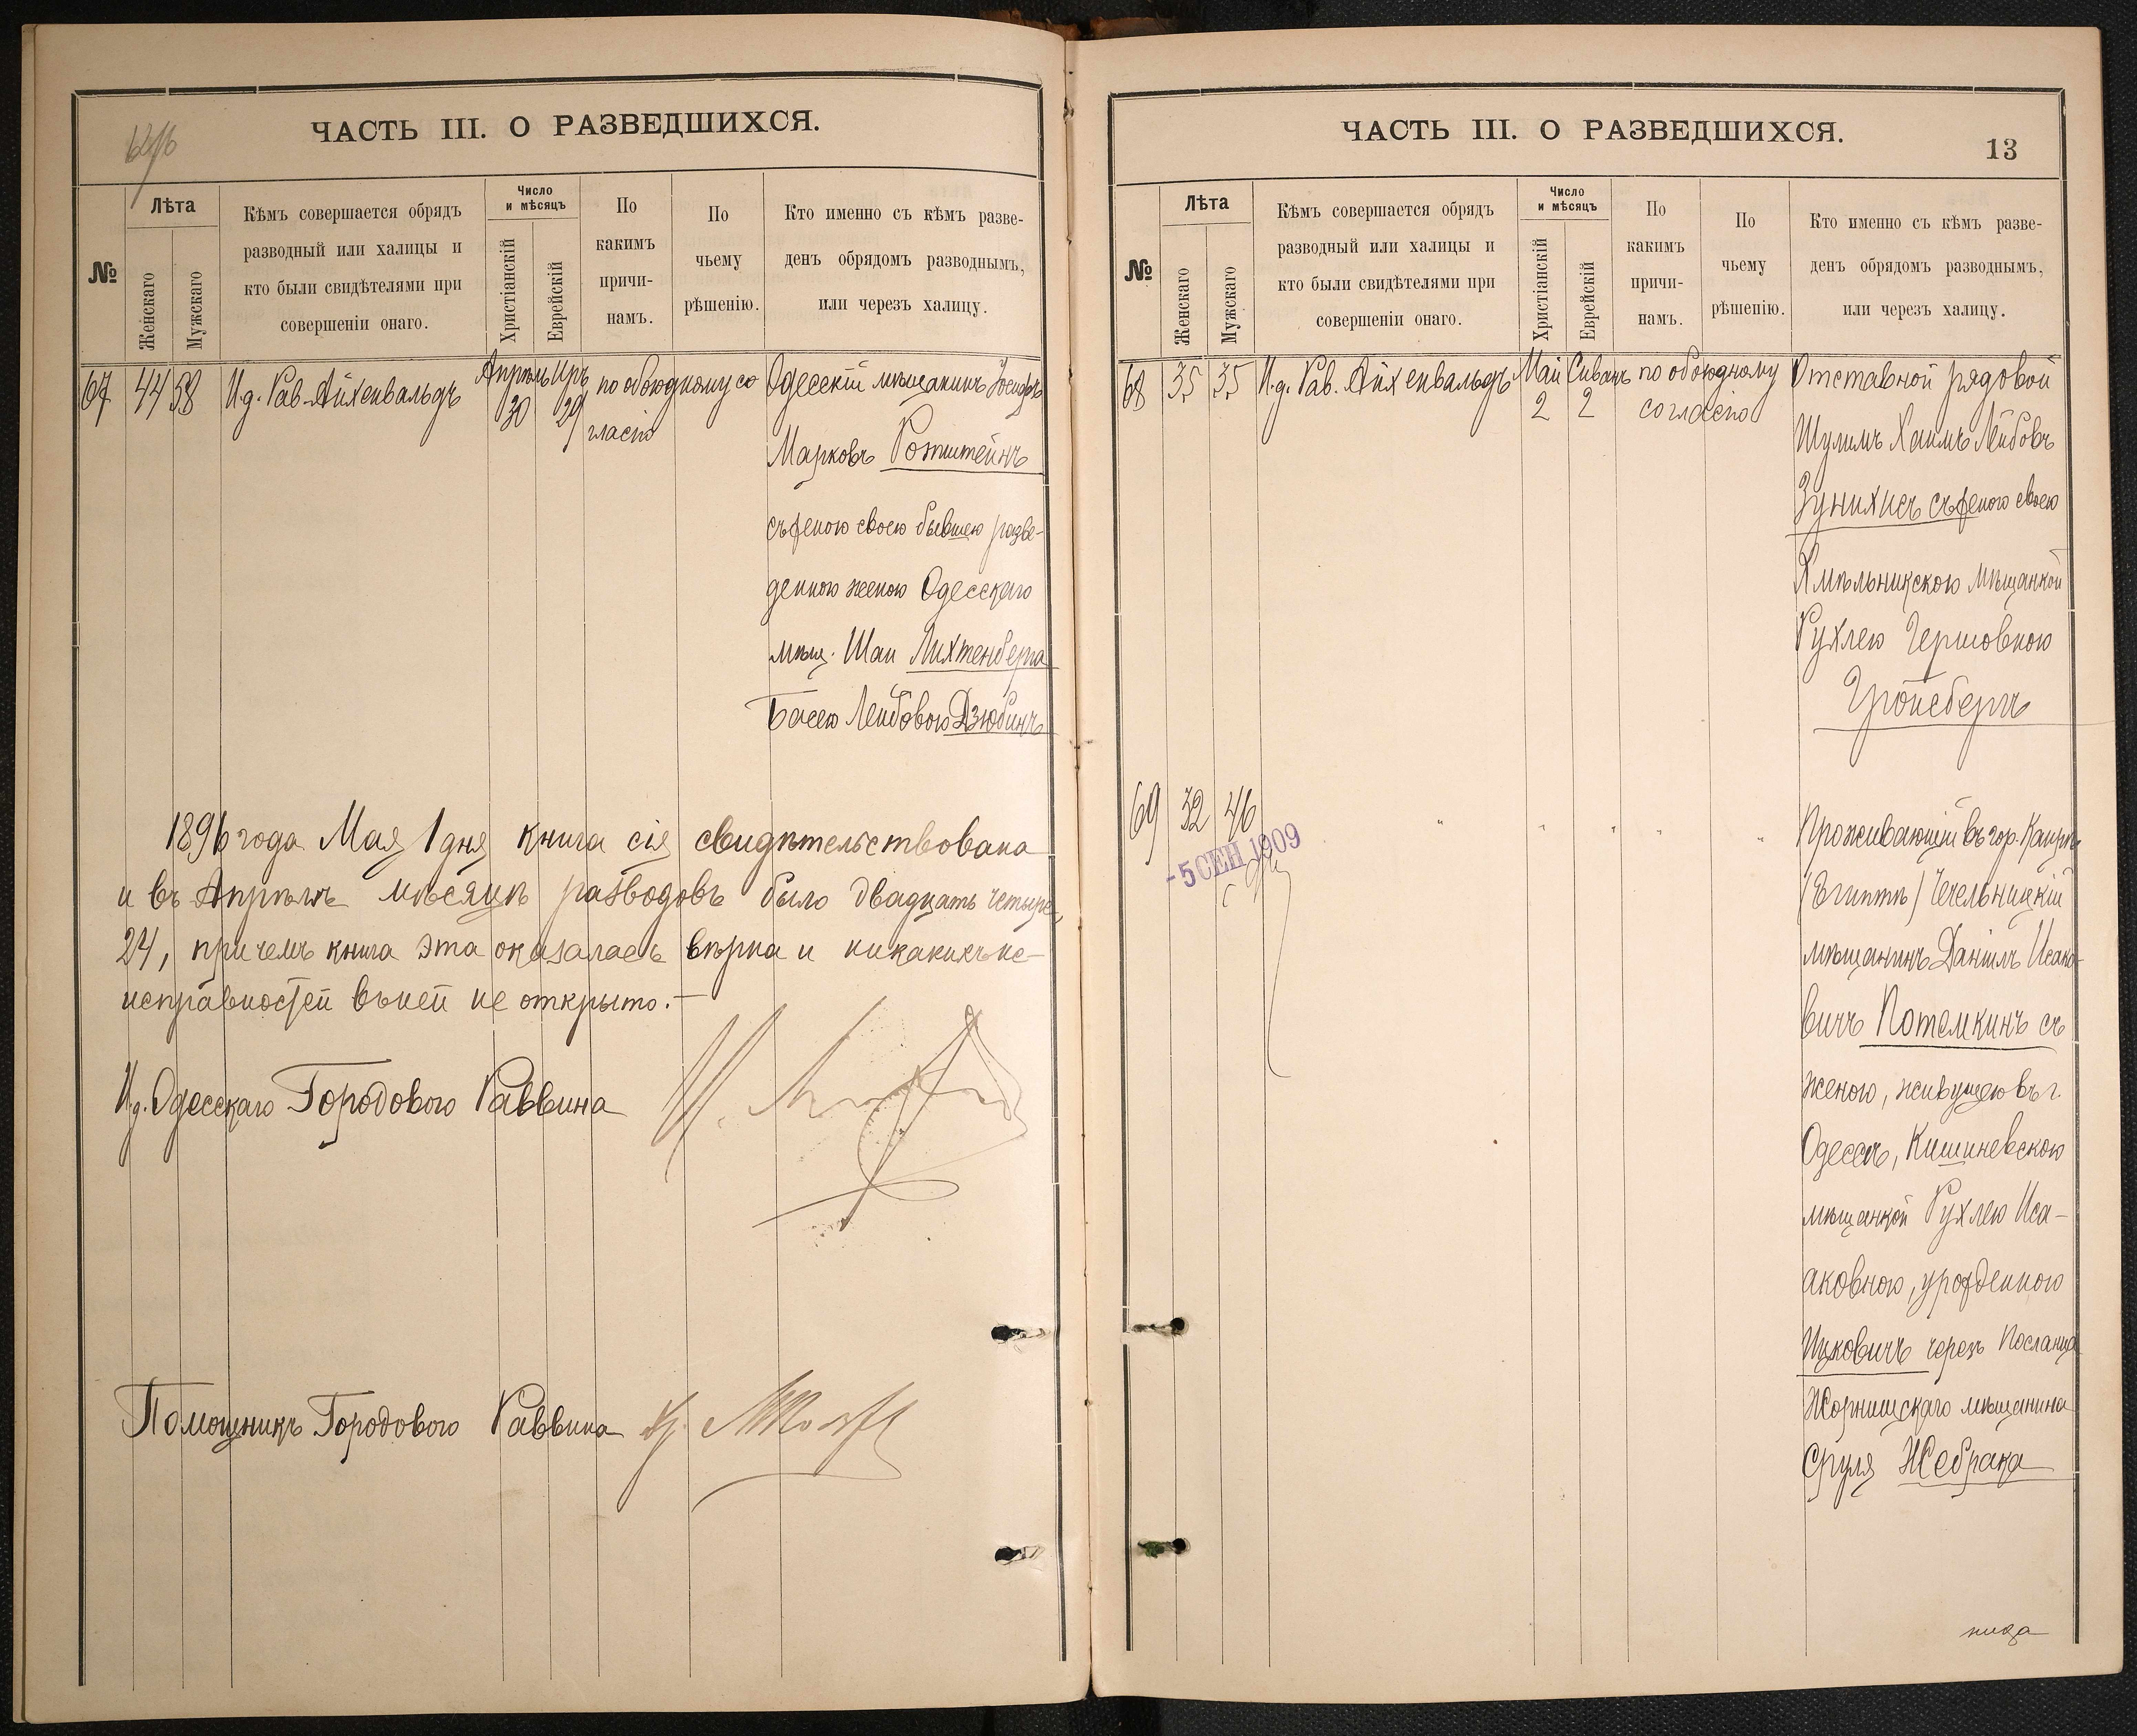 ЧАСТЬ III. О РАЗВЕДШИХСЯ.
№
Лѣта
Женскаго
Мужскаго
Кѣмъ совершается обрядъ
разводный или халицы и
кто были свидѣтелями при
совершеніи онаго.
Число
и мѣсяцъ
Христіанскій
Еврейскій
По
какимъ
причи-
намъ.
По
чьему
рѣшенію.
Кто именно съ кѣмъ разве-
денъ обрядомъ разводнымъ,
или черезъ халицу.
67 44 58 И.д. Рав. Айхенвальдъ
Апрѣль 30
Иръ 29
по обоюдному со
гласію
Одесскій мѣщанинъ Іосифъ
Марковъ Ротштейнъ
съ женою своею бывшею разве-
денною женою Одесскаго
мѣщ. Шаи Лихтенберга
Басею Лейбовою Дзюбинъ
1896 года Мая 1 дня книга сія свидѣтельствована
и въ Апрѣлѣ мѣсяцѣ разводовъ было двадцать четыре,
24, причемъ книга эта оказалась вѣрна и никакихъ не-
исправностей въ ней не открыто.—
И.д. Одесскаго Городового Раввина
Помощникъ Городового Раввина
ЧАСТЬ III. О РАЗВЕДШИХСЯ.
13
№
Лѣта
Женскаго
Мужскаго
Кѣмъ совершается обрядъ
разводный или халицы и
кто были свидѣтелями при
совершеніи онаго.
Число
и мѣсяцъ
Христіанскій
Еврейскій
По
какимъ
причи-
намъ.
По
чьему
рѣшенію.
Кто именно съ кѣмъ разве-
денъ обрядомъ разводнымъ,
или черезъ халицу.
68 35 35 И.д. Рав. Айхенвальдъ
Май 2
Сиванъ 2
по обоюдному
согласію
Отставной рядовой
Шулимъ Хаимъ Лейбовъ
Зунихисъ съ женою своею
Хмѣльникскою мѣщанкой
Рухлею Гершовною
Гройсбергъ
69 32 46
- 5 СЕН 1909
" " " " "
Проживающій въ гор. Каирѣ
(Египтѣ) Чечельницкій
мѣщанинъ Даніилъ Исако-
вичъ Потемкинъ съ
женою, живущею въ г.
Одессѣ, Кишиневскою
мѣщанкой Рухлею Иса-
аковною, урожденною
Ицковичъ черезъ посланца
Жорнищскаго мѣщанина
Сруля Жебрака